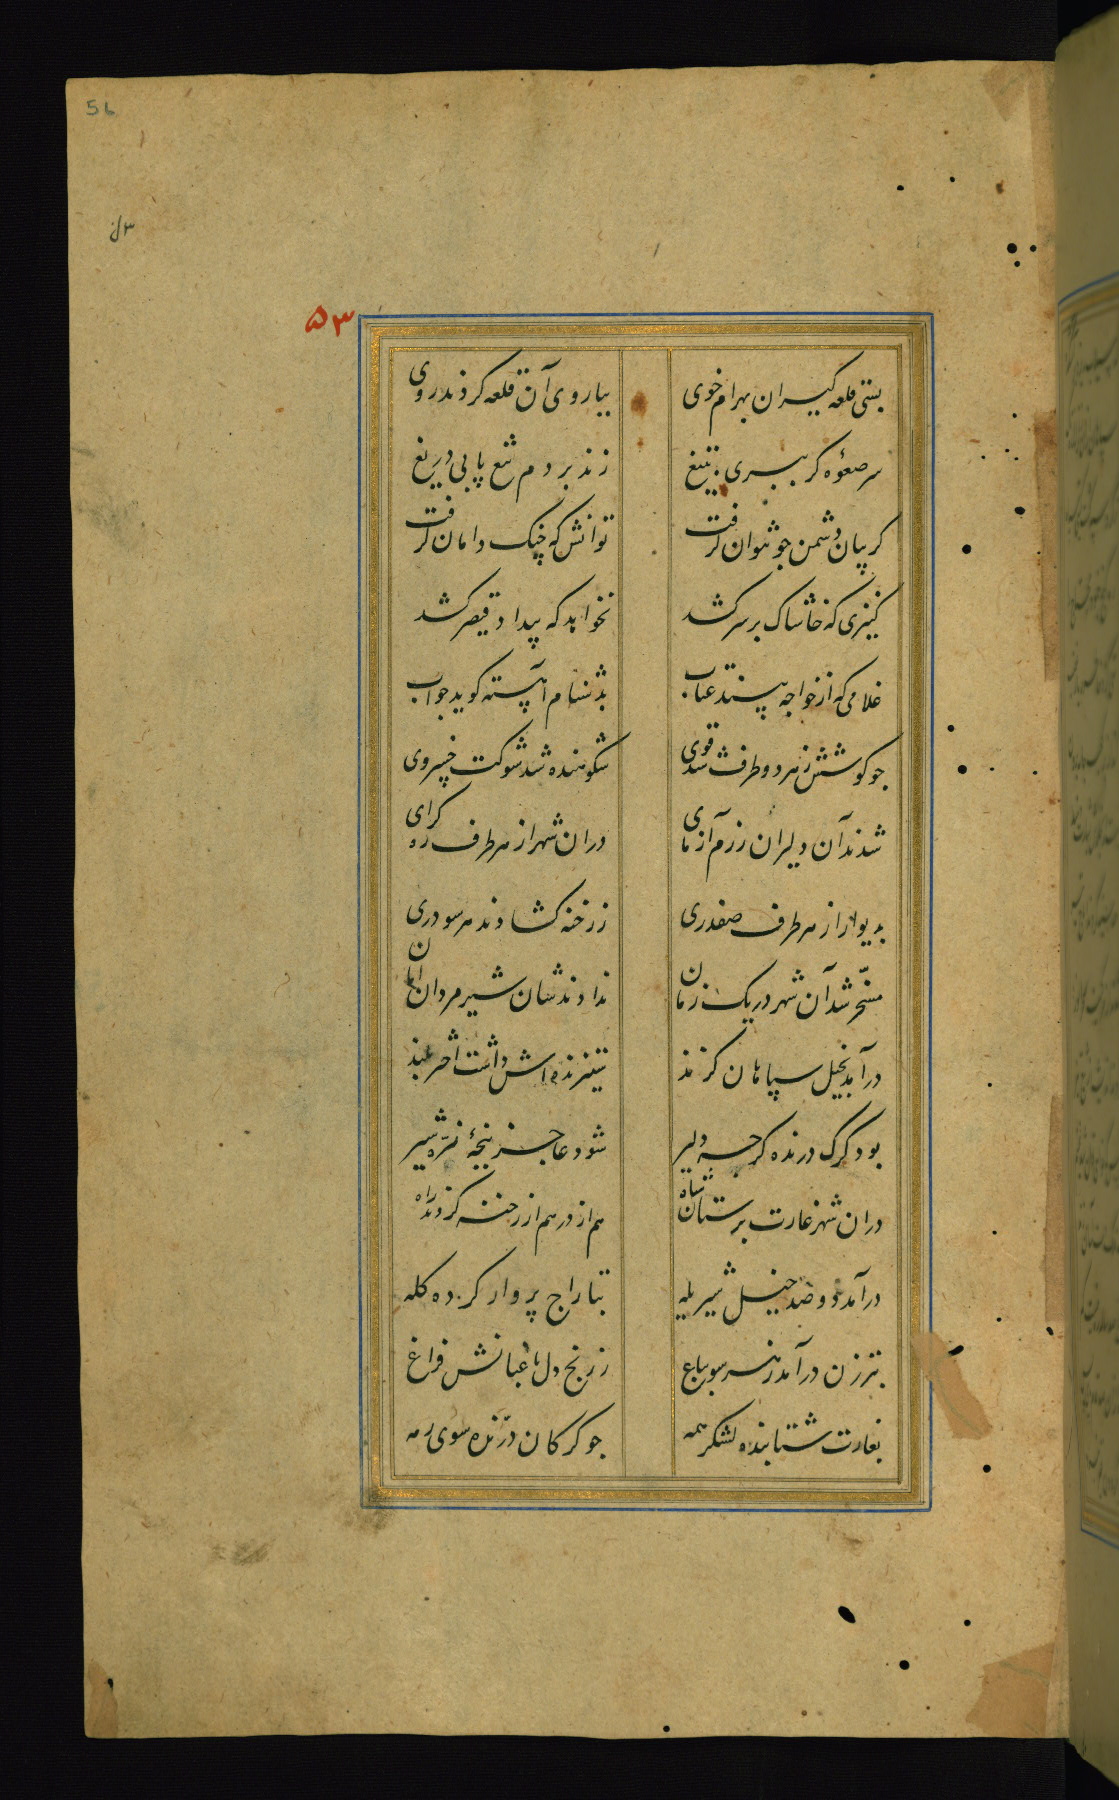 56
۵۳
بستی قلعه کیران بهرام خوی
بیاروی آن قلعه کردند روی
سر صعوه کر ببری بتیغ
زند بر دم تیغ پا بی دریغ
کریبان دشمن چو نتوان کرفت
توانش که چنک دامان کرفت
کنیزی که خاشاک بر سر کشد
نخواهد که بیداد قیصر کشد
غلامی که از خواجه بیند عتاب
بدشنام آهسته کوید جواب
چو کوشش ز هر دو طرف شد قوی
شکوهنده شد شوکت خسروی
شدند آن دلیران رزم آزمای
دران شهر از هر طرف ره کرای
بدیوار از هر طرف صفدری
ز رخنه کشادند هر سو دری
مسخّر شد آن شهر در یک زمان
ندادند شان شیر مردان امان
درآمد بخیل سپاهان کزند
ستیزنده اش داشت اختر بلند
بود کرک درنده کرچه دلیر
شود عاجز پنجۀ نرّه شیر
دران شهر غارت برستان شاه
هم از در هم از رخنه کردند راه
درآمد دو صد خیل شیر یله
بتاراج پروار کرده کله
تبرزن درآمد ز هر سو بباغ
ز رنج دل باغبانش فراغ
بغارت شتابنده لشکر همه
چو کرکان درّنده سوی رمه